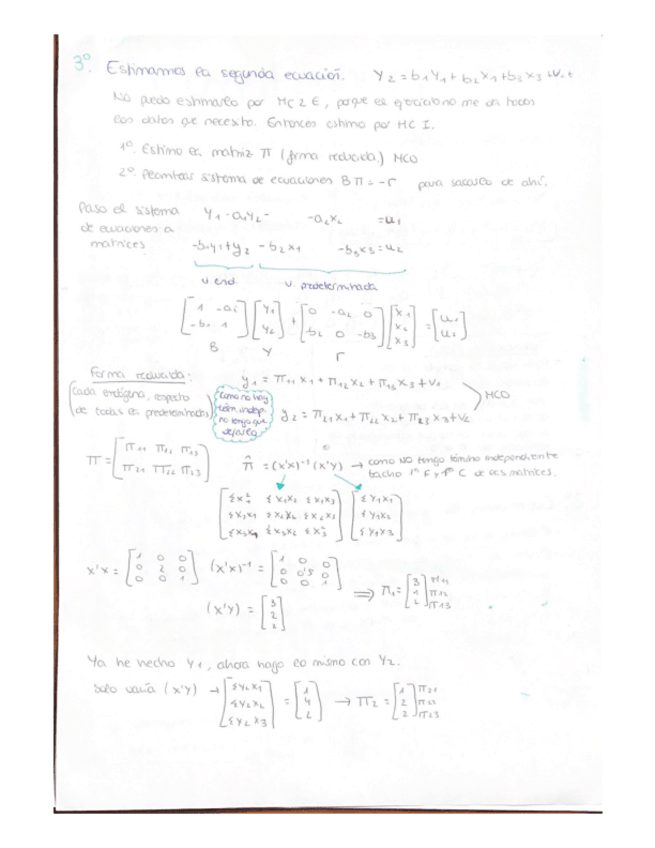 3º. Estimamos la segunda ecuación. Y2 = b1Y1 + b2X1 + b3X3 + V2t
No puedo estimarlo por MC2E, porque el ejercicio no me da todos
los datos que necesito. Entonces estimo por MCI.
1º. Estimo la matriz Π (forma reducida) MCO
2º. Planteas sistema de ecuaciones BΠ = -Γ para sacarlo de ahí.
Paso el sistema
de ecuaciones a
matrices
Y1 - a1Y2 - -a2X2 = u1
-b1y1 + y2 - b2x1 -b3x3 = u2
v. end. v. predeterminada
[1 -a1; -b1 1] [Y1; Y2] + [0 -a2 0; b2 0 -b3] [X1; X2; X3] = [u1; u2]
B Y Γ
Forma reducida:
(Cada endógena, respecto
de todas las predeterminadas)
Como no hay
térm. indep.
no tengo que
y1 = Π11X1 + Π12X2 + Π13X3 + V1
y2 = Π21X1 + Π22X2 + Π23X3 + V2
MCO
Π = [Π11 Π12 Π13; Π21 Π22 Π23]
Π̂ = (X'X)⁻¹(X'Y) → como NO tengo término independiente
tacho 1ª F y 1ª C de las matrices.
[ΣX1² ΣX1X2 ΣX1X3; ΣX2X1 ΣX2X2 ΣX2X3; ΣX3X1 ΣX3X2 ΣX3²] [ΣY1X1; ΣY1X2; ΣY1X3]
X'X = [1 0 0; 0 2 0; 0 0 1] (X'X)⁻¹ = [1 0 0; 0 0'5 0; 0 0 1]
(X'Y) = [3; 2; 2] ⟹ Π1 = [3; 1; 2] Π11 Π12 Π13
Ya he hecho Y1, ahora hago lo mismo con Y2.
Solo varía (X'Y) → [ΣY2X1; ΣY2X2; ΣY2X3] = [1; 4; 2] → Π2 = [1; 2; 2] Π21 Π22 Π23